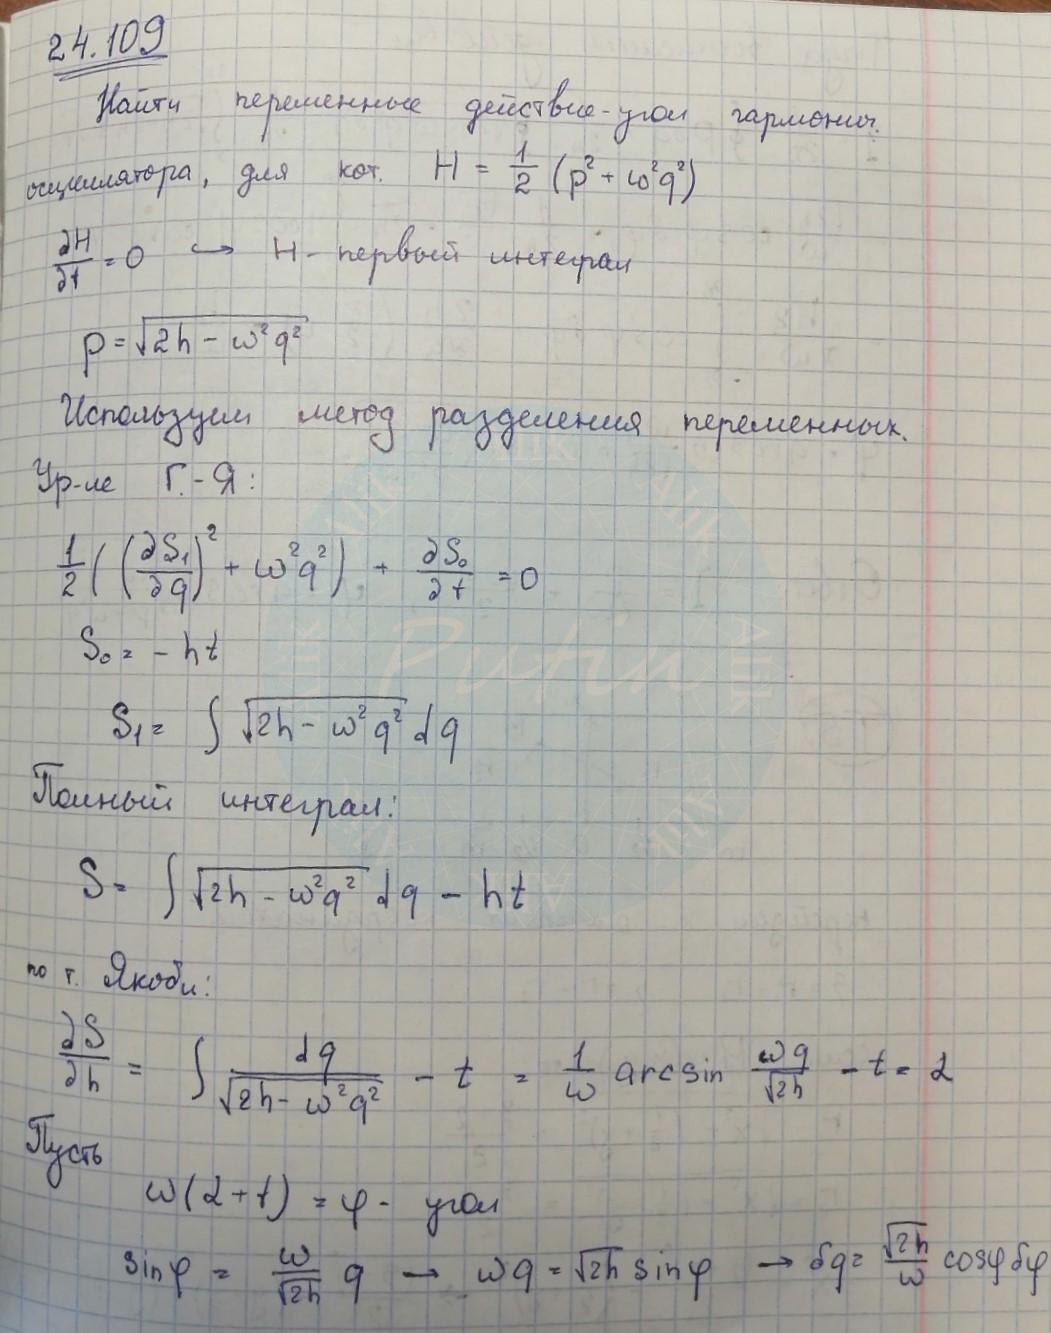 24.109
Найти переменные действие-угол гармонич.
осциллятора, для кот. H = 1/2 (p² + ω²q²)
∂H/∂t = 0 ↪ H - первый интеграл
p = √(2h - ω²q²)
Используем метод разделения переменных.
Ур-ие Г.-Я:
1/2 ((∂S₁/∂q)² + ω²q²) + ∂S₀/∂t = 0
S₀ = - ht
S₁ = ∫ √(2h - ω²q²) dq
Полный интеграл:
S = ∫ √(2h - ω²q²) dq - ht
по т. Якоби:
∂S/∂h = ∫ dq/√(2h - ω²q²) - t = 1/ω arcsin ωq/√2h - t = α
Пусть
ω(α + t) = φ - угол
sinφ = ω/√2h q → ωq = √2h sinφ → δq = √2h/ω cosφ δφ
Putin
Alik
Alik
Alik
Alik
Alik
Alik
Alik
Alik